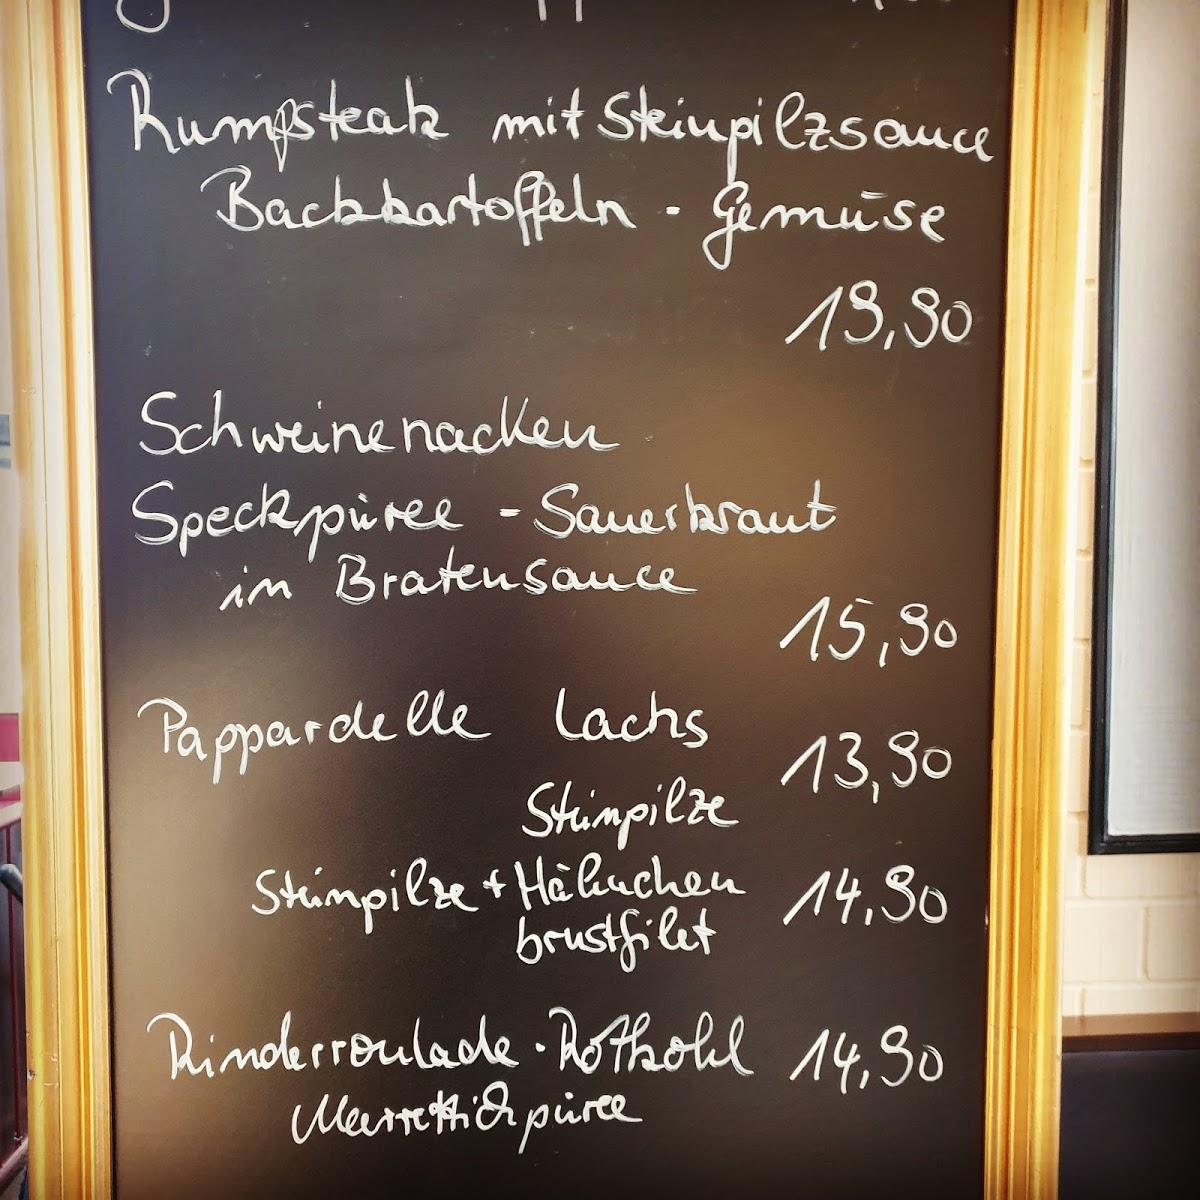 Rumpsteak mit Steinpilzsauce
Backkartoffeln - Gemüse
19,90
Schweinenacken
Speckpüree - Sauerkraut
in Bratensauce
15,90
Pappardelle Lachs
13,90
Steinpilze
Steinpilze + Hähnchen 14,90
brustfilet
Rinderroulade · Rotkohl 14,90
Meerrettichpüree